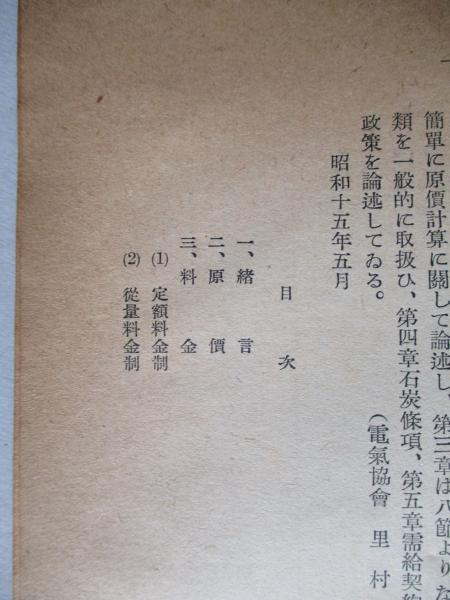 簡單に原價計算に關して論述し、第三章は八節よりな
類を一般的に取扱ひ、第四章石炭條項、第五章需給契約
政策を論述してゐる。
昭和十五年五月
(電氣協會 里村
目次
一、緒言
二、原價
三、料金
(1) 定額料金制
(2) 從量料金制